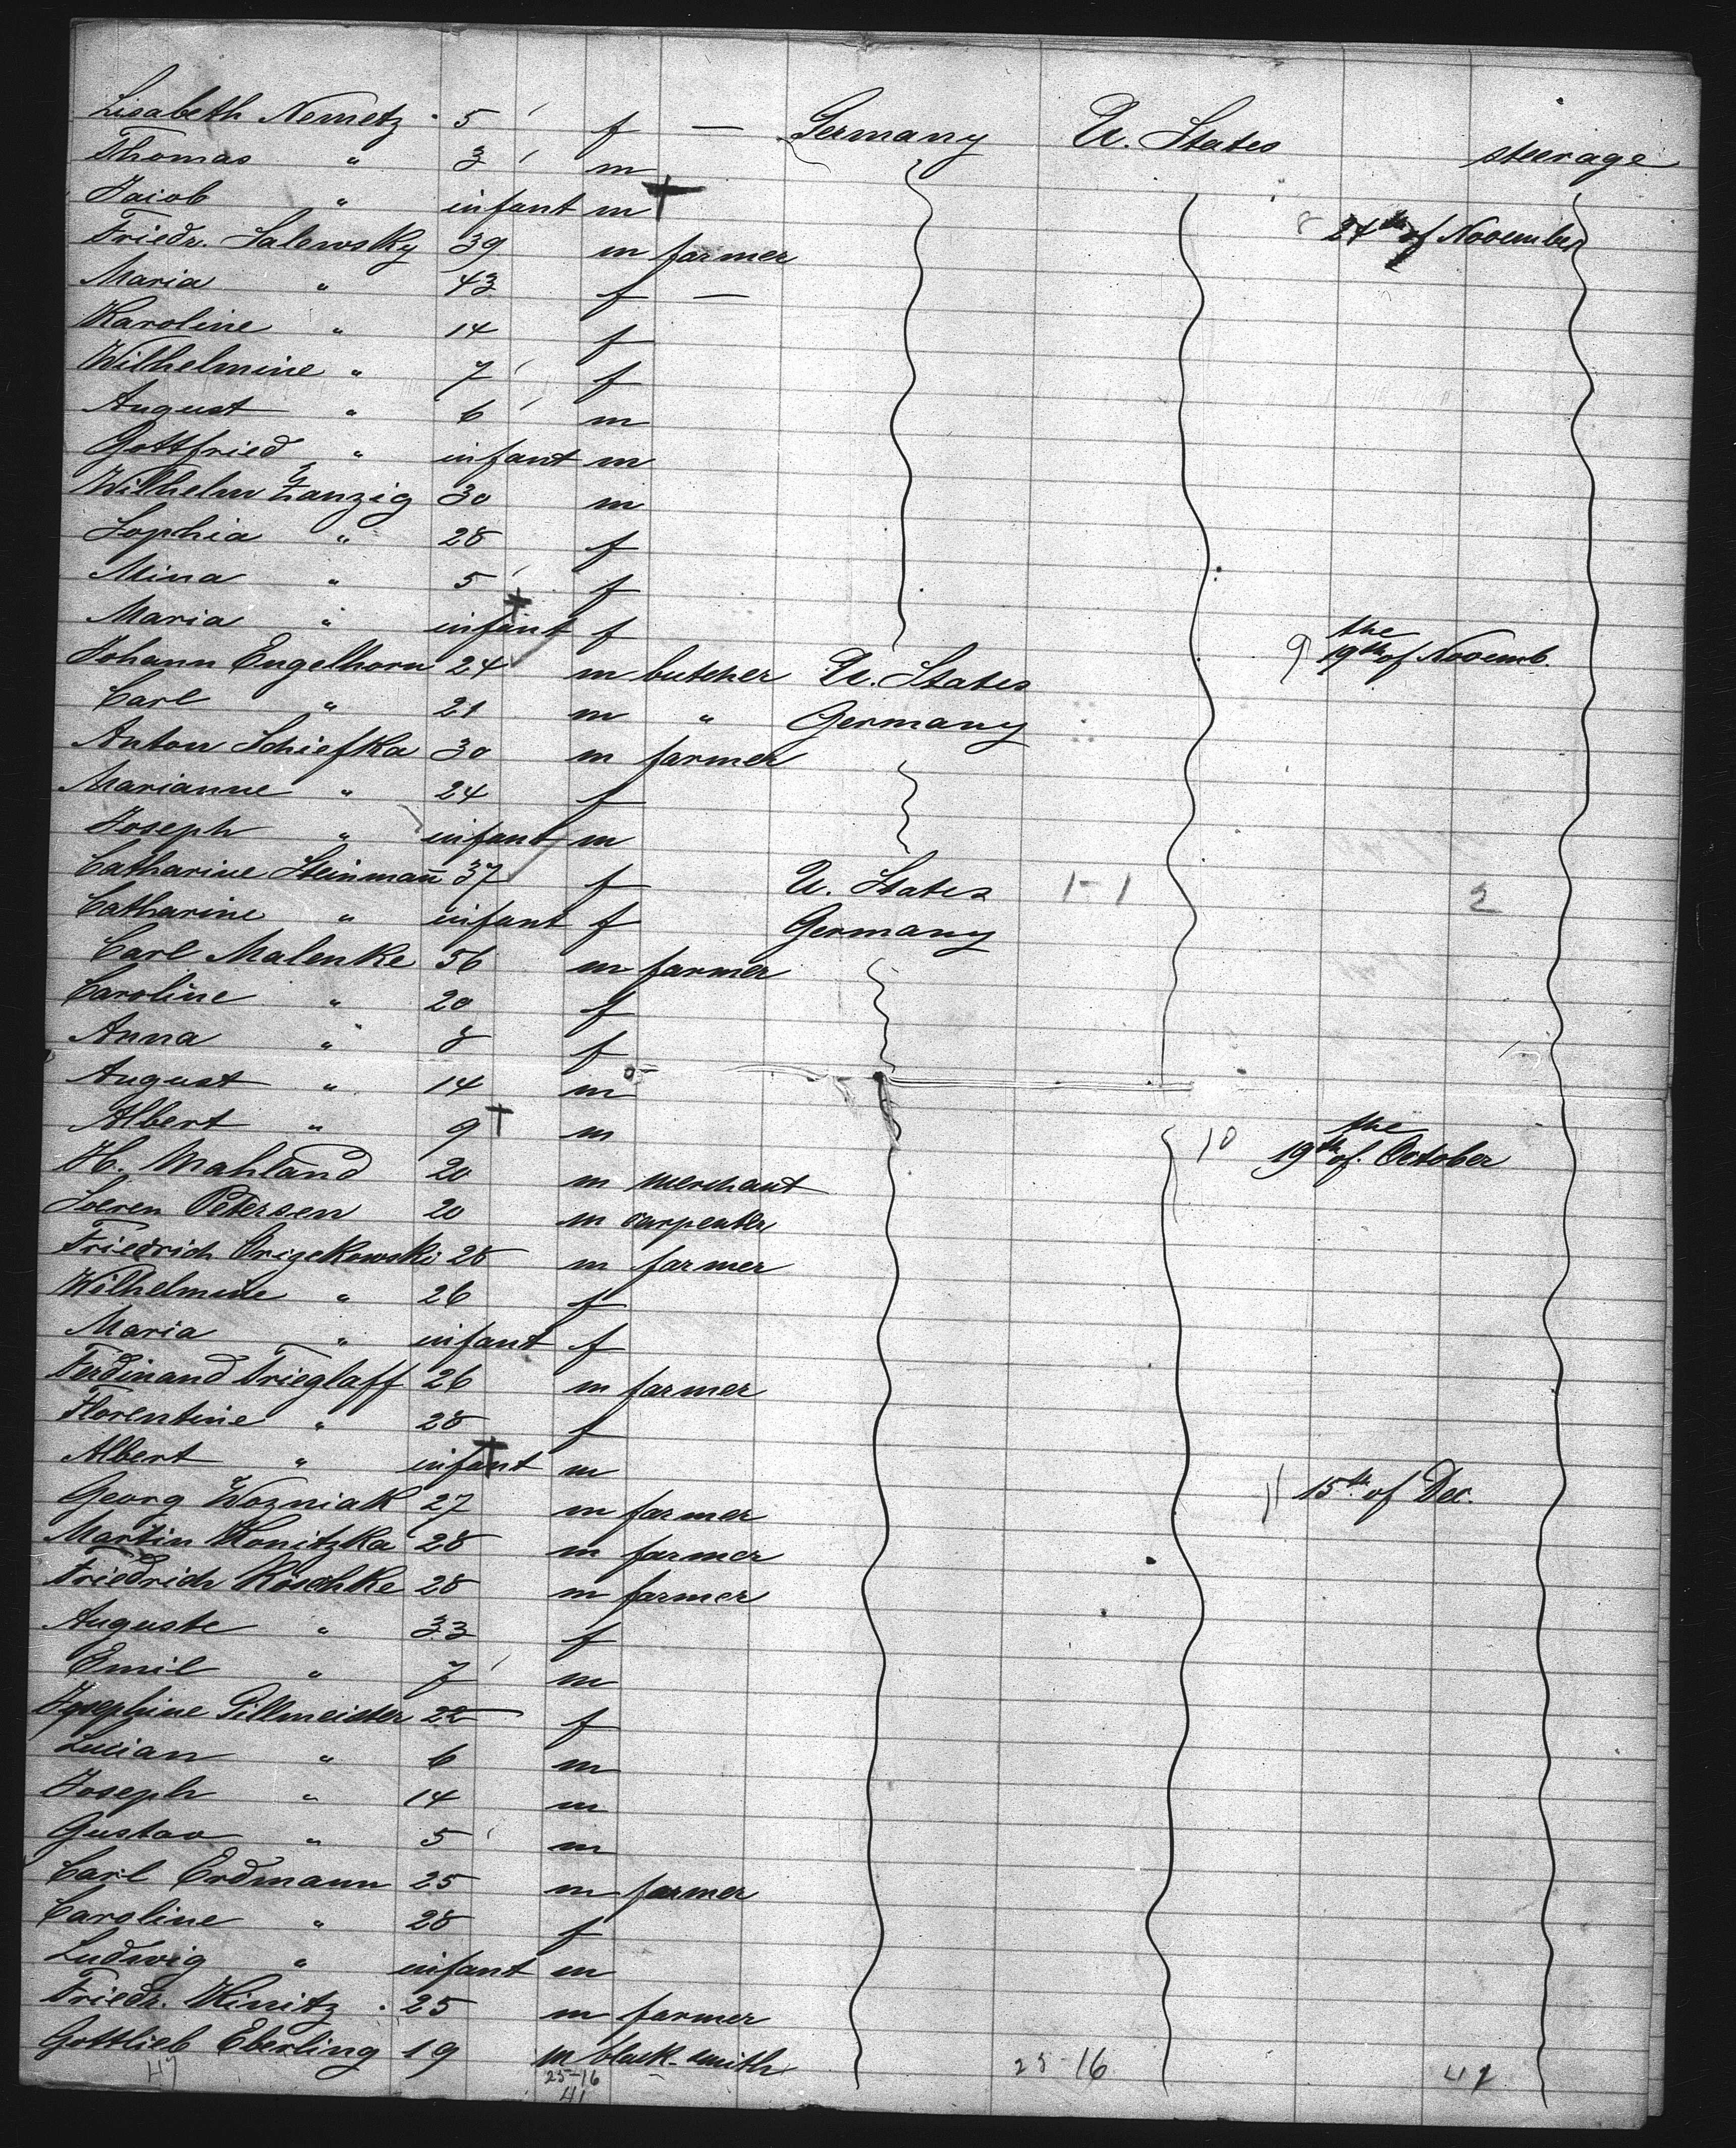 Lisabeth Nemetz 5 f — Germany U. States steerage
Thomas " 3 m
Jacob " infant m +
Friedr. Salewsky 39 m farmer 8 24th of November
Maria " 43 f —
Karoline " 14 f
Wilhelmine " 7 f
August " 6 m
Gottfried " infant m
Wilhelm Zanzig 30 m
Sophia " 28 f
Mina " 5 f
Maria " infant + f 9 the 19th of Novemb.
Johann Engelhorn 24 m butcher U. States
Carl " 21 m " Germany
Anton Schiefka 30 m farmer
Marianne " 24 f
Joseph " infant m
Catharine Steinmañ 37 f U. States 1-1 2
Catharine " infant f Germany
Carl Malenke 56 m farmer
Caroline " 20 f
Anna " 8 f
August " 14 m
Albert " 9 + m 10 the 19th of October
H. Mahland 20 m merchant
Soeren Petersen 20 m carpenter
Friedrich 28 m farmer
Wilhelmine " 26 f
Maria " infant f
Ferdinand Trieglaff 26 m farmer
Florentine " 28 f
Albert " infant + m 11 15th of Dec.
Georg Wozniak 27 m farmer
Martin Konitzka 28 m farmer
Friedrich Koschke 28 m farmer
Auguste " 33 f
Emil " 7 m
Josephine Pillmeister 22 f
Lucian " 6 m
Joseph " 14 m
Gustav " 5 m
Carl Erdmann 25 m farmer
Caroline " 28 f
Ludwig " infant m
Friedr. 25 m farmer
Gottlieb Eberling 19 m black-smith 25-16
25-16
41